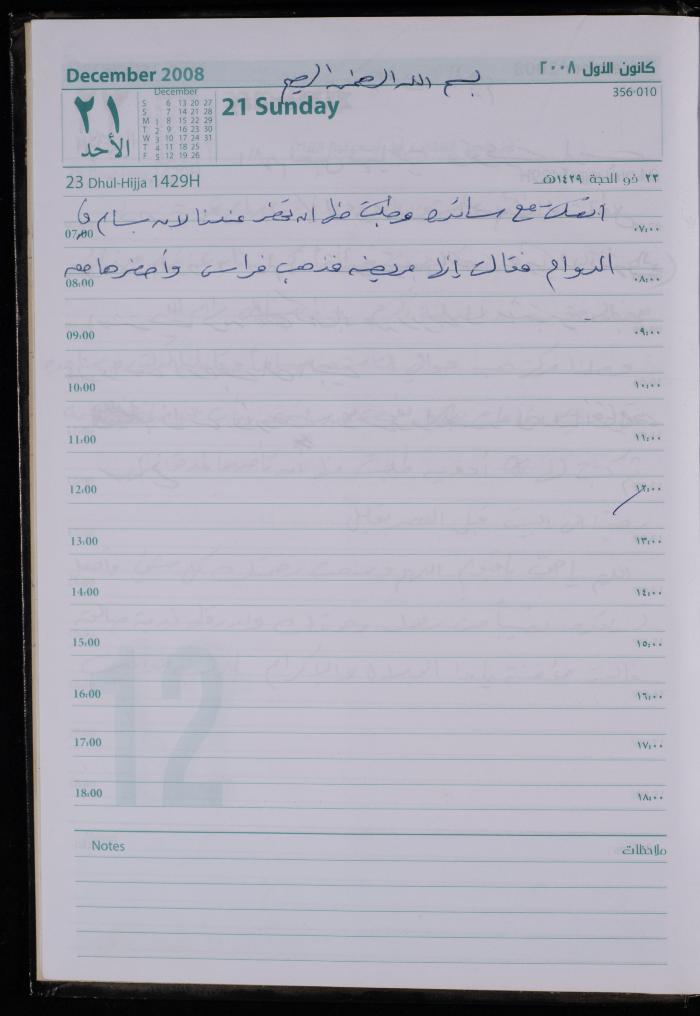 December 2008
بسم الله الرحمن الرحيم
كانون الأول ٢٠٠٨
٢١
الأحد
December
S 6 13 20 27
S 7 14 21 28
M 1 8 15 22 29
T 2 9 16 23 30
W 3 10 17 24 31
T 4 11 18 25
F 5 12 19 26
21 Sunday
356-010
23 Dhul-Hijja 1429H
٢٣ ذو الحجة ١٤٢٩هـ
اتصلت مع سائده وطلبت منها ان تحضر عندنا لان بسام في
07:00 ٠٧:٠٠
الدوام فقالت إنها مريضه فذهب فراس وأحضرها معه
08:00 ٠٨:٠٠
09:00 ٠٩:٠٠
10:00 ١٠:٠٠
11:00 ١١:٠٠
12:00 ١٢:٠٠
13:00 ١٣:٠٠
14:00 ١٤:٠٠
15:00 ١٥:٠٠
16:00 ١٦:٠٠
17:00 ١٧:٠٠
18:00 ١٨:٠٠
12
Notes ملاحظات